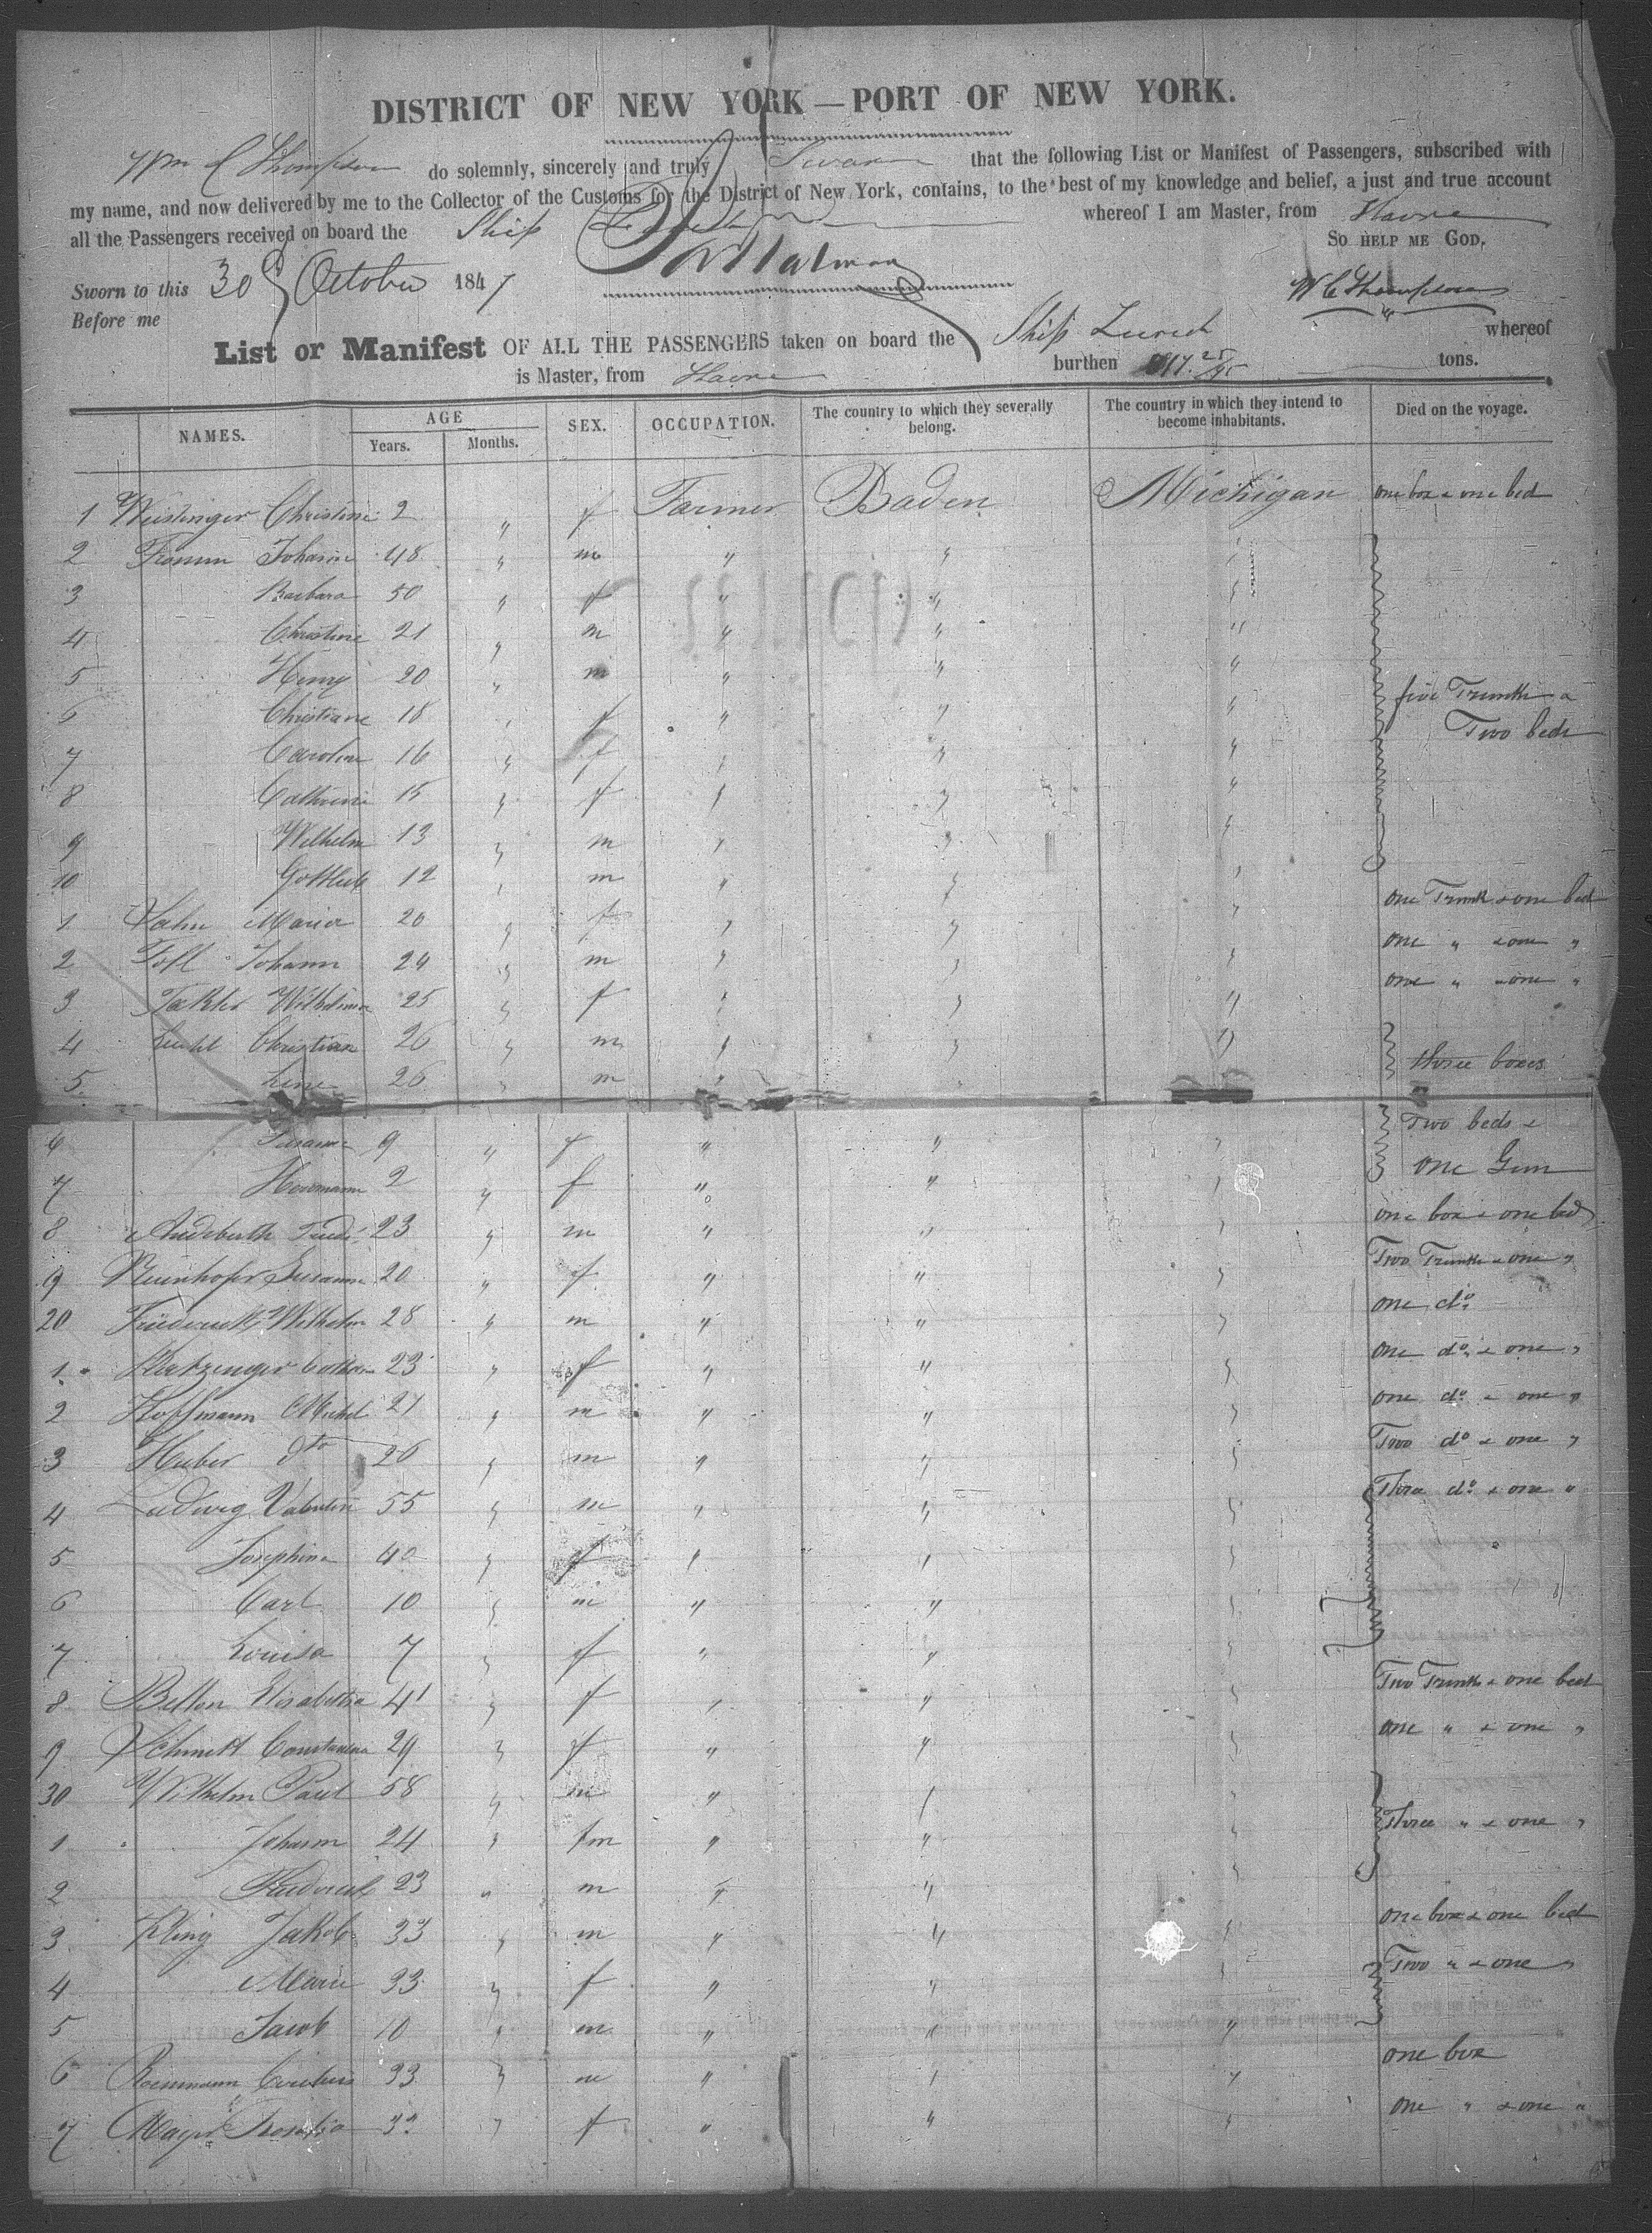 DISTRICT OF NEW YORK — PORT OF NEW YORK.
Wm C Thompson do solemnly, sincerely and truly Swear that the following List or Manifest of Passengers, subscribed with
my name, and now delivered by me to the Collector of the Customs for the District of New York, contains, to the best of my knowledge and belief, a just and true account
all the Passengers received on board the Ship whereof I am Master, from Havre
So help me God,
Sworn to this 30 October 1847
W C Thompson
Before me
List or Manifest OF ALL THE PASSENGERS taken on board the Ship Zurich whereof
is Master, from Havre burthen tons.
NAMES. AGE Years. Months. SEX. OCCUPATION. The country to which they severally belong. The country in which they intend to become inhabitants. Died on the voyage.
1 Christine 2 " f Farmer Baden Michigan one box & one bed
2 Johann 48 " m " " "
3 Barbara 50 " f " " "
4 Christine 21 " m " " "
5 Henry 20 " m " " "
6 Christiane 18 " f " " " five Trunks &
7 Caroline 16 " f " " " Two beds
8 Catherine 15 " f " " "
9 Wilhelm 13 " m " " "
10 Gottlieb 12 " m " " "
1 Maria 20 " f " " " one Trunk & one bed
2 Johann 24 " m " " " one " & one "
3 25 " f " " " one " & one "
4 Christian 26 " m " " "
5 26 " m " " " three boxes
6 9 " f " " " Two beds &
7 Hermann 2 " f " " " one Gun
8 23 " m " " " one box & one bed
9 Susanna 20 " f " " " Two Trunks & one "
20 Wilhelm 28 " m " " " one do
1 23 " f " " " one do & one "
2 Hoffmann Michel 21 " m " " " one do & one "
3 Huber dto 26 " m " " " Two do & one "
4 Ludwig Valentin 55 " m " " " Three do & one "
5 Josephine 40 " f " " "
6 Carl 10 " m " " "
7 Louisa 7 " f " " "
8 Elisabetha 41 " f " " " Two Trunks & one bed
9 Schmitt 29 " f " " " one " & one "
30 Wilhelm Paul 58 " m " " "
1 Johann 24 " m " " " Three " & one "
2 Frederick 23 " m " " "
3 Kling Jakob 33 " m " " " one box & one bed
4 Marie 33 " f " " " Two " & one "
5 Jacob 10 " m " " "
6 33 " m " " " one box
7 Mayer Rosalia " f " " " one " & one "